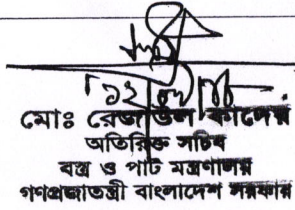 মোঃ রেজাউল কাদের
অতিরিক্ত সচিব
বস্ত্র ও পাট মন্ত্রণালয়
গণপ্রজাতন্ত্রী বাংলাদেশ সরকার